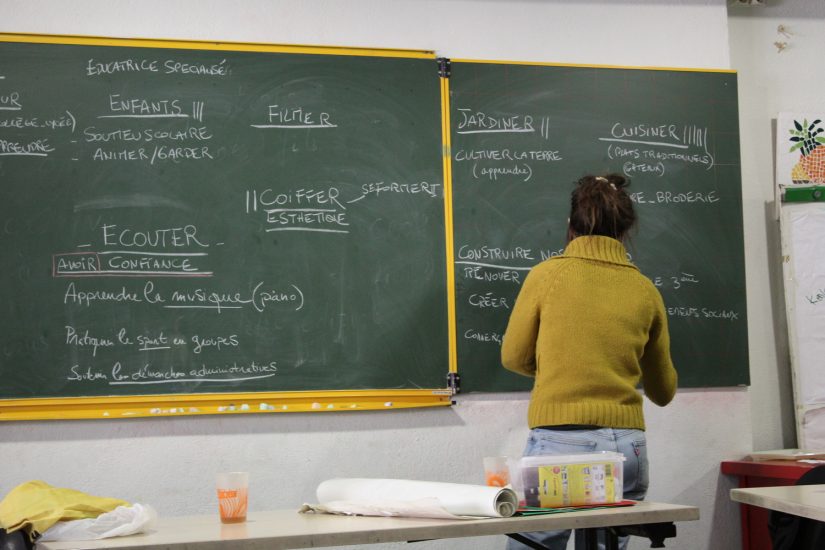 EDUCATRICE SPECIALISÉ
ENFANTS |||
- SOUTIEN SCOLAIRE
- ANIMER/GARDER
FILMER
|| COIFFER SE FORMER
ESTHÉTIQUE
- ECOUTER -
AVOIR CONFIANCE
Apprendre la musique (piano)
Pratiquer le sport en groupes
Soutenir les démarches administratives
JARDINER ||
CULTIVER LA TERRE
(apprendre)
CUISINER
(PLATS TRADITIONNELS)
GÂTEAUX
BRODERIE
CONSTRUIRE NOS
RÉNOVER
CRÉER
3ème
SOCIAUX